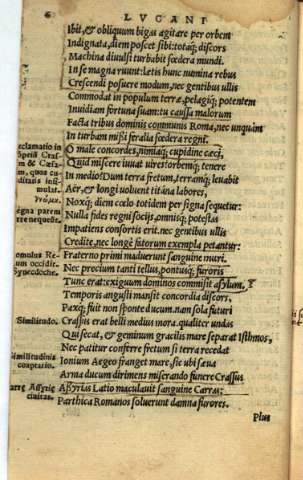 6 LVCANI
Ibit, & obliquum bigas agitare per orbem
Indignata, diem poscet sibi: totaq; discors
Machina diuulsi turbabit fœdera mundi.
In se magna ruunt: lætis hunc numina rebus
Crescendi posuere modum, nec gentibus ullis
Commodat in populum terræ, pelagiq; potentem
Inuidiam fortuna suam: tu caussa malorum
Facta tribus dominis communis Roma, nec unquam
In turbam missi feralia fœdera regni.
O male concordes, nimiaq; cupidine cæci,
Quid miscere iuuat uires? orbemq; tenere
In medio? Dum terra fretum, terramq; leuabit
Aër, & longi uoluent titana labores,
Noxq; diem cœlo totidem per signa sequetur:
Nulla fides regni socijs, omnisq; potestas
Impatiens consortis erit. nec gentibus ullis
Credite, nec longè fatorum exempla petantur:
Fraterno primi maduerunt sanguine muri.
Nec precium tanti tellus, pontusq; furoris
Tunc erat: exiguum dominos commisit asylum.
Temporis angusti mansit concordia discors,
Paxq; fuit non sponte ducum. nam sola futuri
Crassus erat belli medius mora. qualiter undas
Qui secat, & geminum gracilis mare separat Isthmos,
Nec patitur conferre fretum si terra recedat
Ionium Aegeo franget mare, sic ubi sæua
Arma ducum dirimens miserando funere Crassus
Assyrias Latio maculauit sanguine Carras:
Parthica Romanos soluerunt damna furores.
Plus
clamatio in
quoa cu
ditatis in
mulat.
Γνώμη.
egna parem
rre nequeunt.
omulus Re
um occidit.
Synecdoche.
Similitudo.
imilitudinis
coaptatio.
Assyriæ
ciuitas.